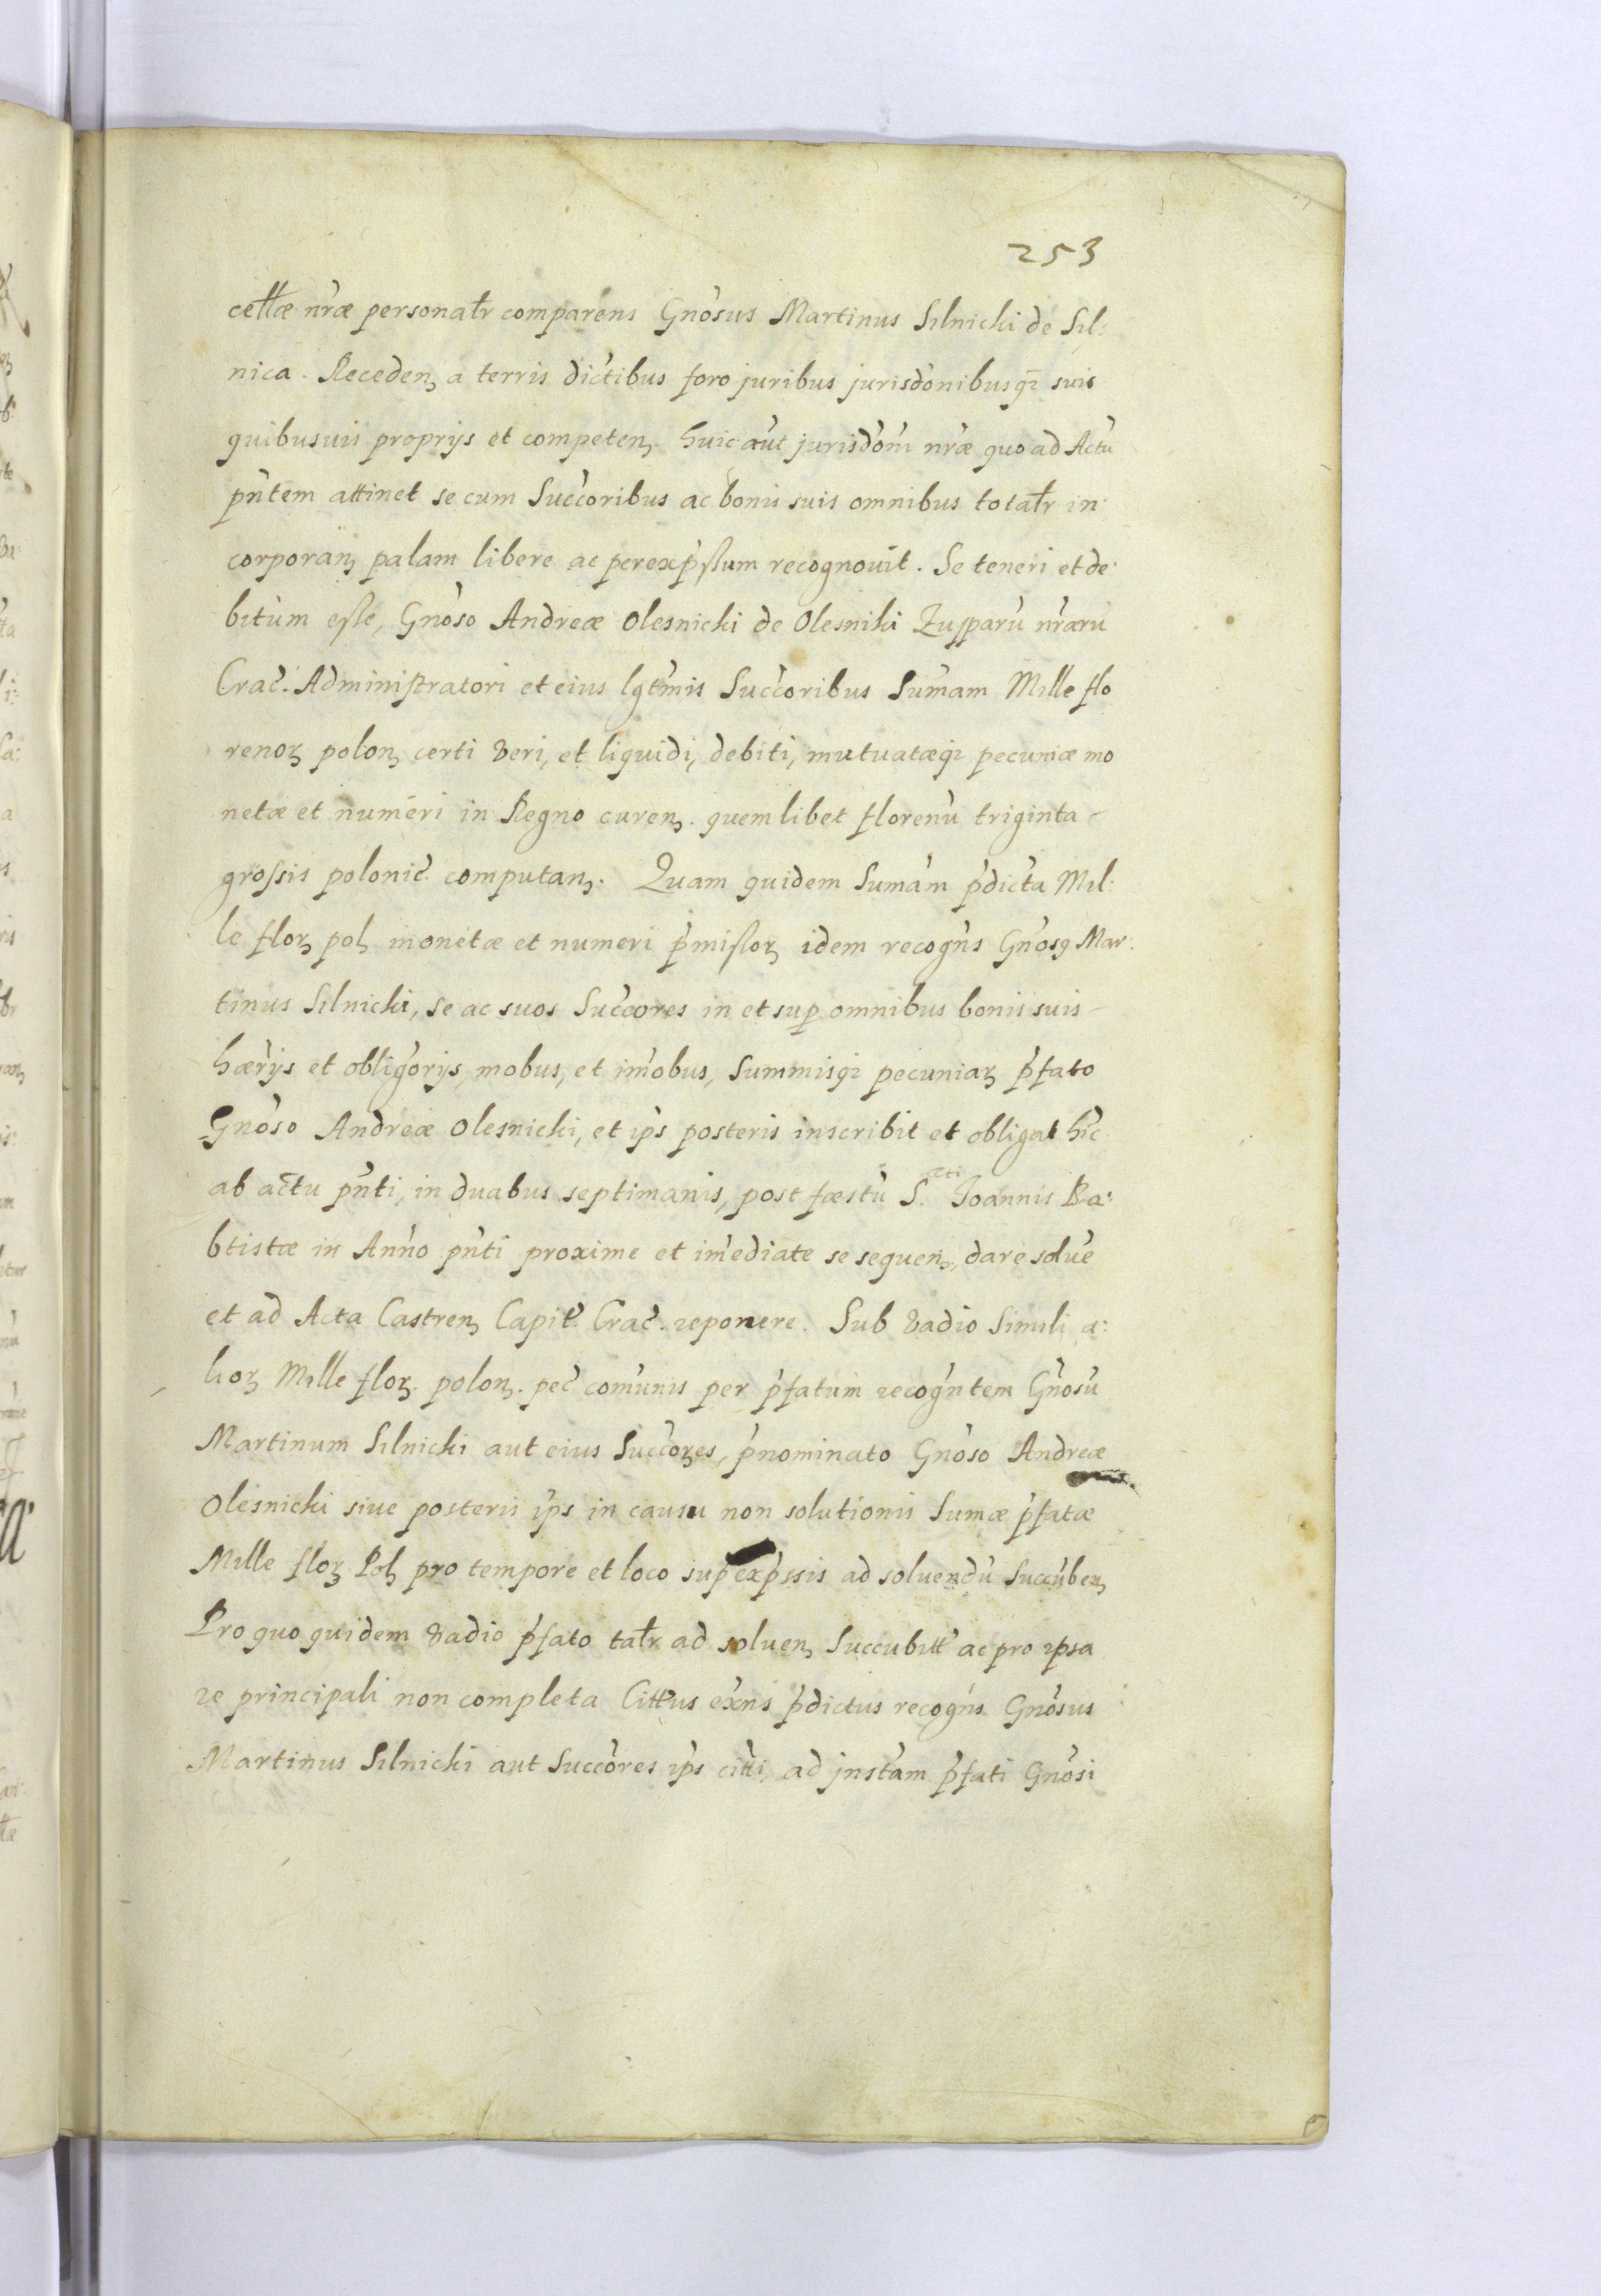 253
cellæ nræ personalr comparens Gnosus Martinus Silnicki de Sil:
nica. Receden͛ a terris dictibus foro juribus jurisdonibusq͛ suis
quibusuis proprijs et competen͛. huic aut jurisdoni nræ quo ad Actu
pntem attinet se cum Succoribus ac bonis suis omnibus totalr in:
corporan͛ palam libere ac perexpssum recognouit. Se teneri et de:
bitum esse, Gnoso Andreæ Olesnicki de Olesniki Zupparu nraru
Crac. Administratori et eius lgtmis Succoribus Sumam Mille flo
renoꝝ polon͛ certi veri, et liquidi, debiti, mutuatæq͛ pecuniæ mo
netæ et numeri in Regno curen͛. quemlibet florenu triginta -
grossis polonic. computan͛. Quam quidem Sumam pdicta Mil:
le floꝝ pol͛ monetæ et numeri pmissoꝝ idem recogns Gnosꝯ Mar:
tinus Silnicki, se ac suos Succores in et sup omnibus bonis suis -
hærijs et obligorijs, mobus, et imobus, Summisq͛ pecuniaꝝ pfato
Gnoso Andreæ Olesnicki, et ips posteris inscribit et obligat hic
ab actu pnti, in duabus septimanis, post fæstu S.cti Joannis Ba:
btistæ in Anno pnti proxime et imediate se sequen͛, dare solue
et ad Acta Castren͛ Capit. Crac. reponere. Sub vadio Simili a:
lioꝝ Mille floꝝ. polon͛. pec comunis per pfatum recogntem Gnosu
Martinum Silnicki aut eius Succores, pnominato Gnoso Andreæ
Olesnicki siue posteris ips in causu non solutionis Sumæ pfatæ
Mille floꝝ Pol͛ pro tempore et loco sup expssis ad soluendu Succuben͛
Pro quo quidem vadio pfato talr ad soluen͛ Succubitt ac pro ipsa
re principali non completa Cittus exns pdictus recogns Gnosus
Martinus Silnicki aut Succores ips citti, ad jnstam pfati Gnosi